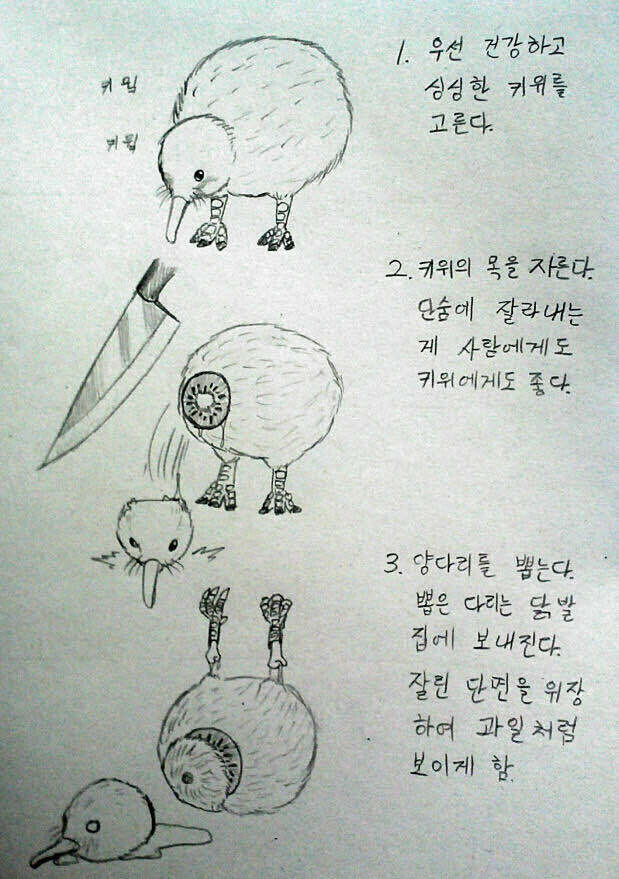 키윕
키윕
1. 우선 건강하고
싱싱한 키위를
고른다.
2. 키위의 목을 자른다.
단숨에 잘라내는
게 사람에게도
키위에게도 좋다.
3. 양다리를 뽑는다.
뽑은 다리는 닭발
집에 보내진다.
잘린 단면을 위장
하여 과일처럼
보이게 함.